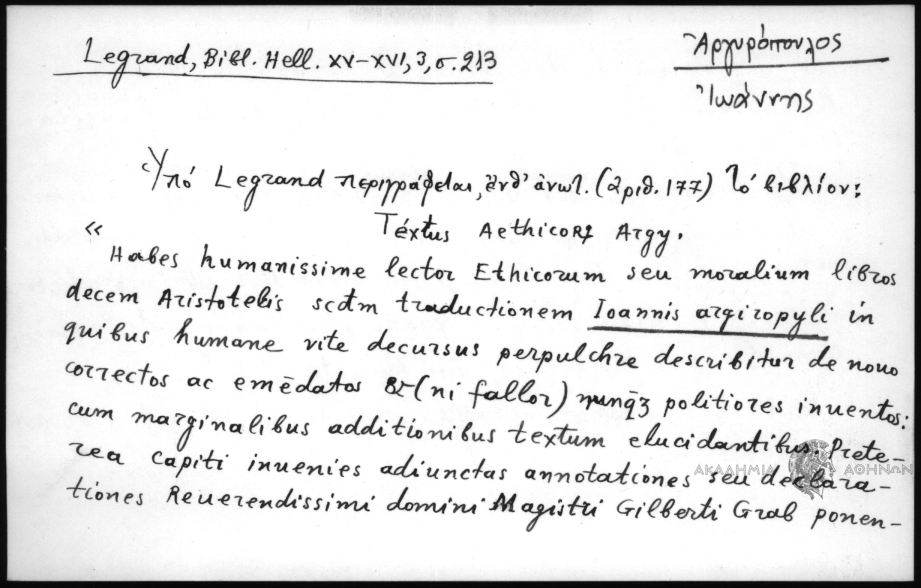 Legrand, Bibl. Hell. XV-XVI, 3, σ. 213
Ἀργυρόπουλος
Ἰωάννης
Ὑπό Legrand περιγράφεται, ἔνθ' ἀνωτ. (ἀριθ. 177) τό βιβλίον:
Téxtus Aethicorꝝ Argy.
« Habes humanissime lector Ethicorum seu moralium libros
decem Aristotelis scdm traductionem Ioannis argiropyli in
quibus humane vite decursus perpulchre describitur de nouo
correctos ac emēdatos & (ni fallor) nunq̄ȝ politiores inuentos:
cum marginalibus additionibus textum elucidantibus. Prete-
rea capiti inuenies adiunctas annotationes seu declara-
tiones Reuerendissimi domini Magistri Gilberti Grab ponen-
ΑΚΑΔΗΜΙΑ ΑΘΗΝΩΝ